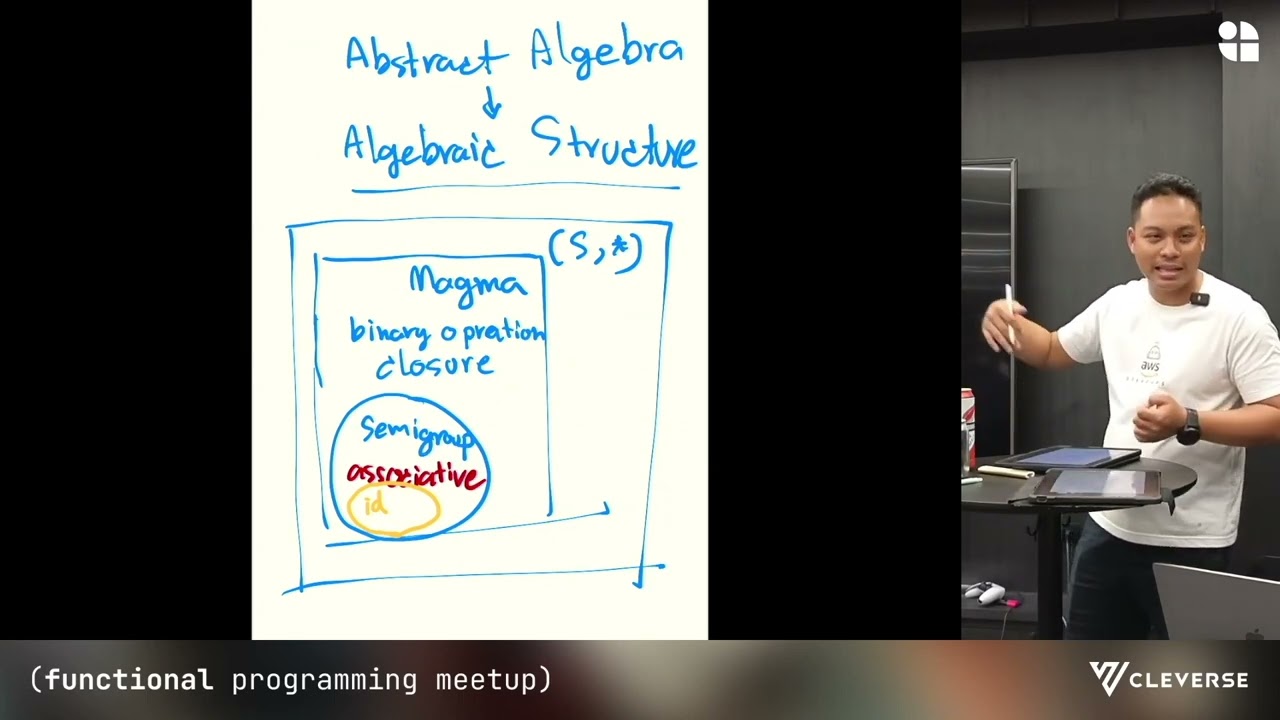 Abstract Algebra
Algebraic Structure
(S, *)
Magma
binary opration
closure
Semigroup
associative
id
aws
(functional programming meetup)
CLEVERSE